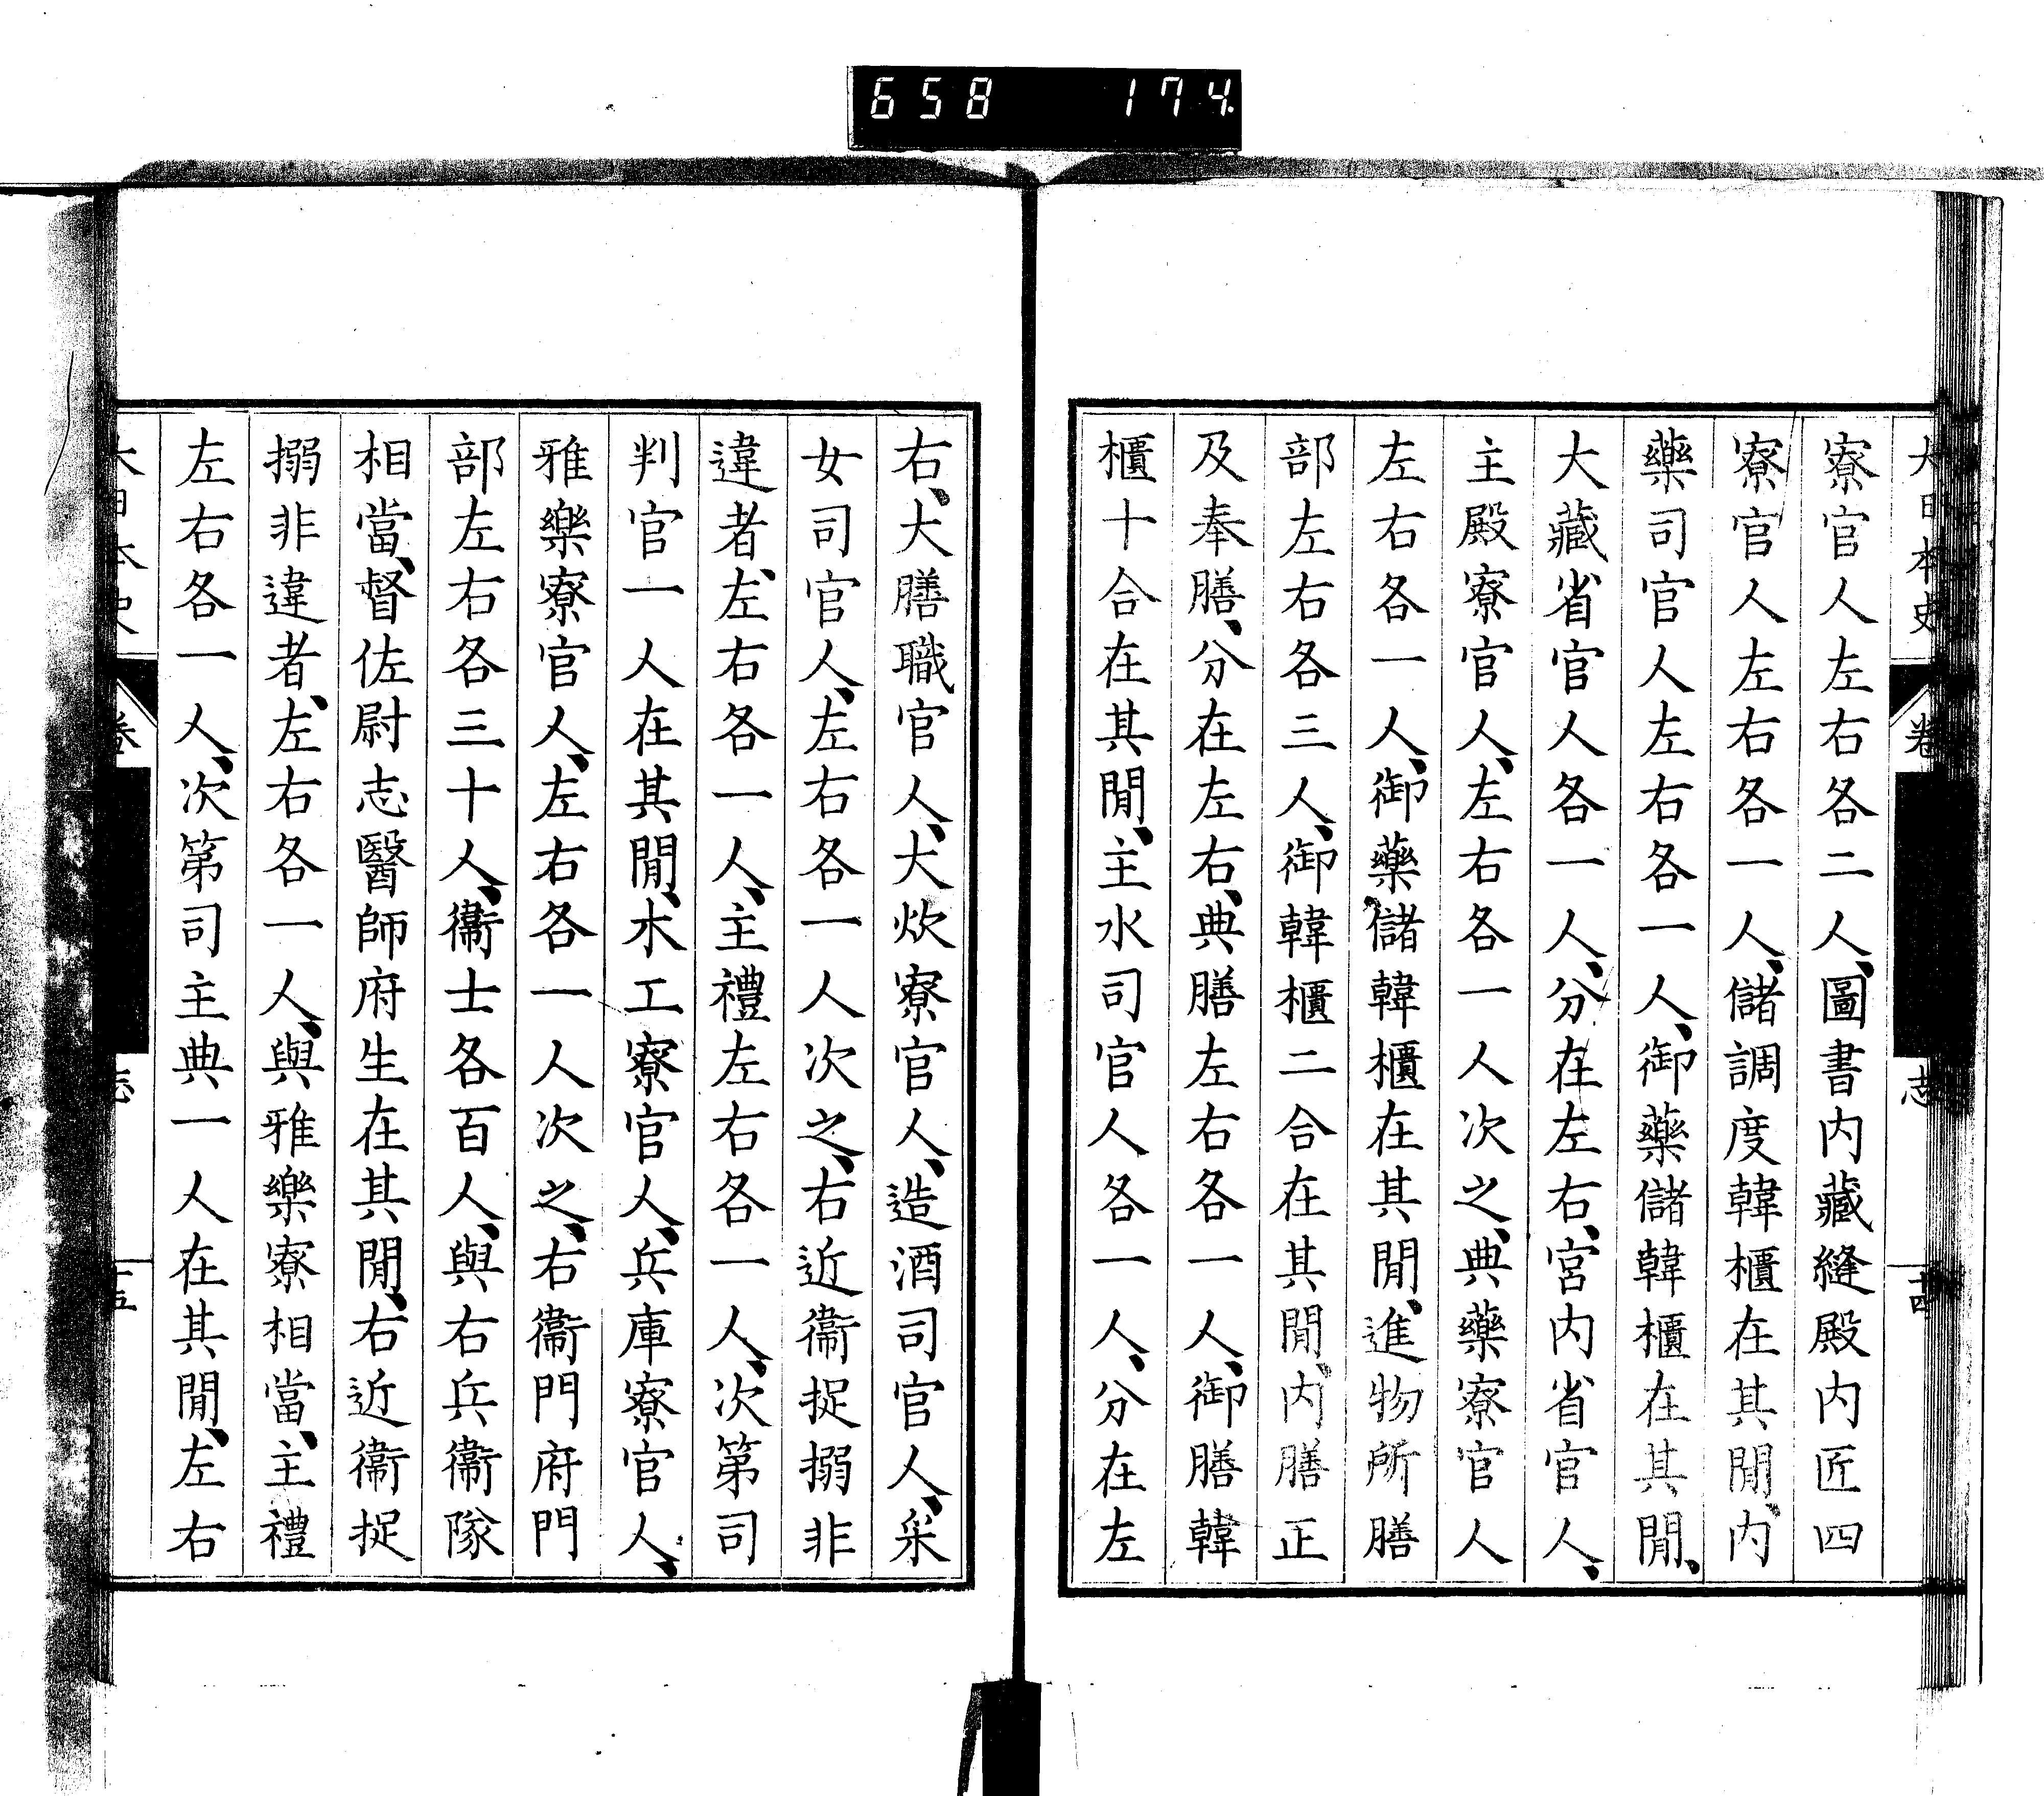 658 174
大日本史 卷 志 十四
寮官人左右各二人、圖書内藏縫殿内匠四
寮官人左右各一人、儲調度韓櫃在其閒、内
藥司官人左右各一人、御藥儲韓櫃在其閒、
大藏省官人各一人、分在左右、宮内省官人、
主殿寮官人、左右各一人次之、典藥寮官人
左右各一人、御藥儲韓櫃在其閒、進物所膳
部左右各三人、御韓櫃二合在其閒、内膳正
及奉膳、分在左右、典膳左右各一人、御膳韓
櫃十合在其閒、主水司官人各一人、分在左
右、大膳職官人、大炊寮官人、造酒司官人、采
女司官人、左右各一人次之、右近衞捉搦非
違者、左右各一人、主禮左右各一人、次第司
判官一人在其閒、木工寮官人、兵庫寮官人、
雅樂寮官人、左右各一人次之、右衞門府門
部左右各三十人、衞士各百人、與右兵衞隊
相當、督佐尉志醫師府生在其閒、右近衞捉
搦非違者、左右各一人、與雅樂寮相當、主禮
左右各一人、次第司主典一人在其閒、左右
大日本史 卷 志